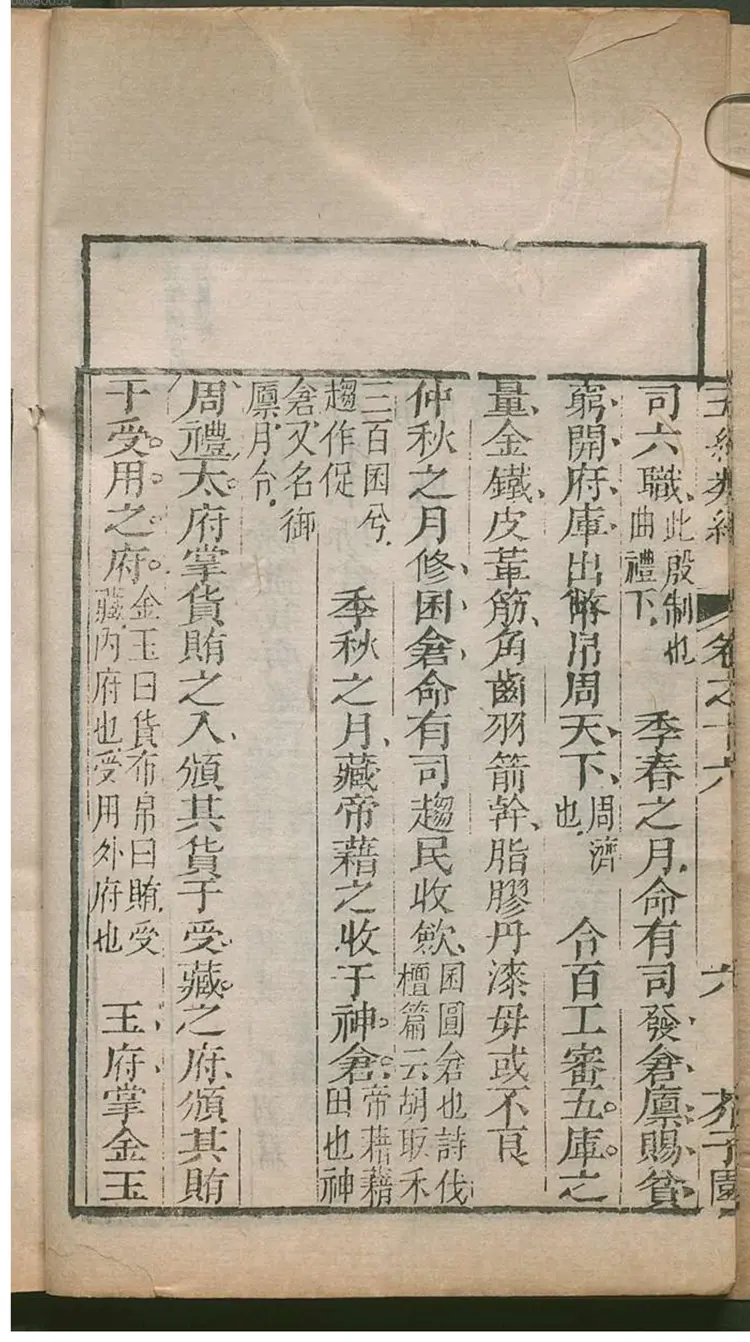 五經類編 卷之十六 六 芥子園
司六職、此殷制也曲禮下 季春之月、命有司發倉廪賜貧
窮、開府庫出幣帛周天下、周濟也 令百工審五庫之
量、金鐵、皮革筋、角齒、羽箭幹、脂膠丹漆毋或不良
仲秋之月、修囷倉命有司趨民收斂、囷圓倉也詩伐檀篇云胡取禾
三百囷兮趨作促 季秋之月、藏帝藉之收于神倉。帝藉藉田也神
倉、又名御廪、月令、
周禮太府掌貨賄之入、頒其貨于受藏之府、頒其賄
于受用之府。金玉曰貨布帛曰賄、受藏、內府也、受用外府也 玉府掌金玉